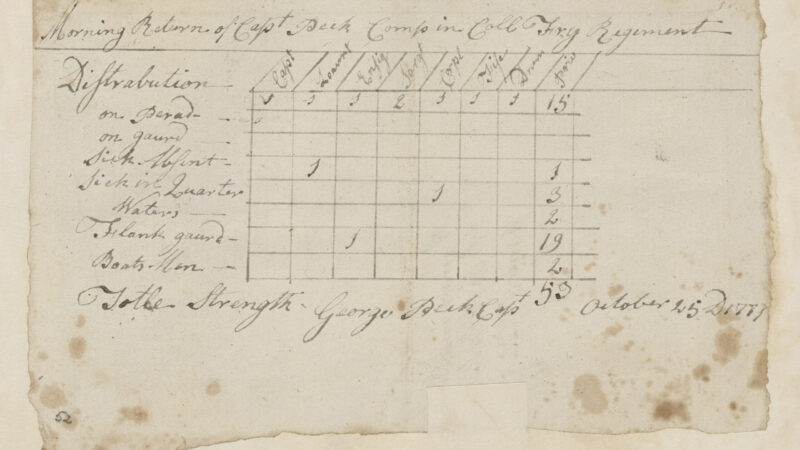 Morning Return of Capt Peck Comp in Coll Fry Regiment
Distrabution — Capt Leaunt Ensig Sargt Corpl Fife Drum Priv
on Perad — 1 1 1 2 1 1 1 15
on gaurd —
Sick Absint - 1 1
Sick in Quarter 1 3
Waters — 2
Flank gaurd - 1 19
Boats Men — 2
Totle Strength - George Peck Capt 53 October 25 D 1777
52